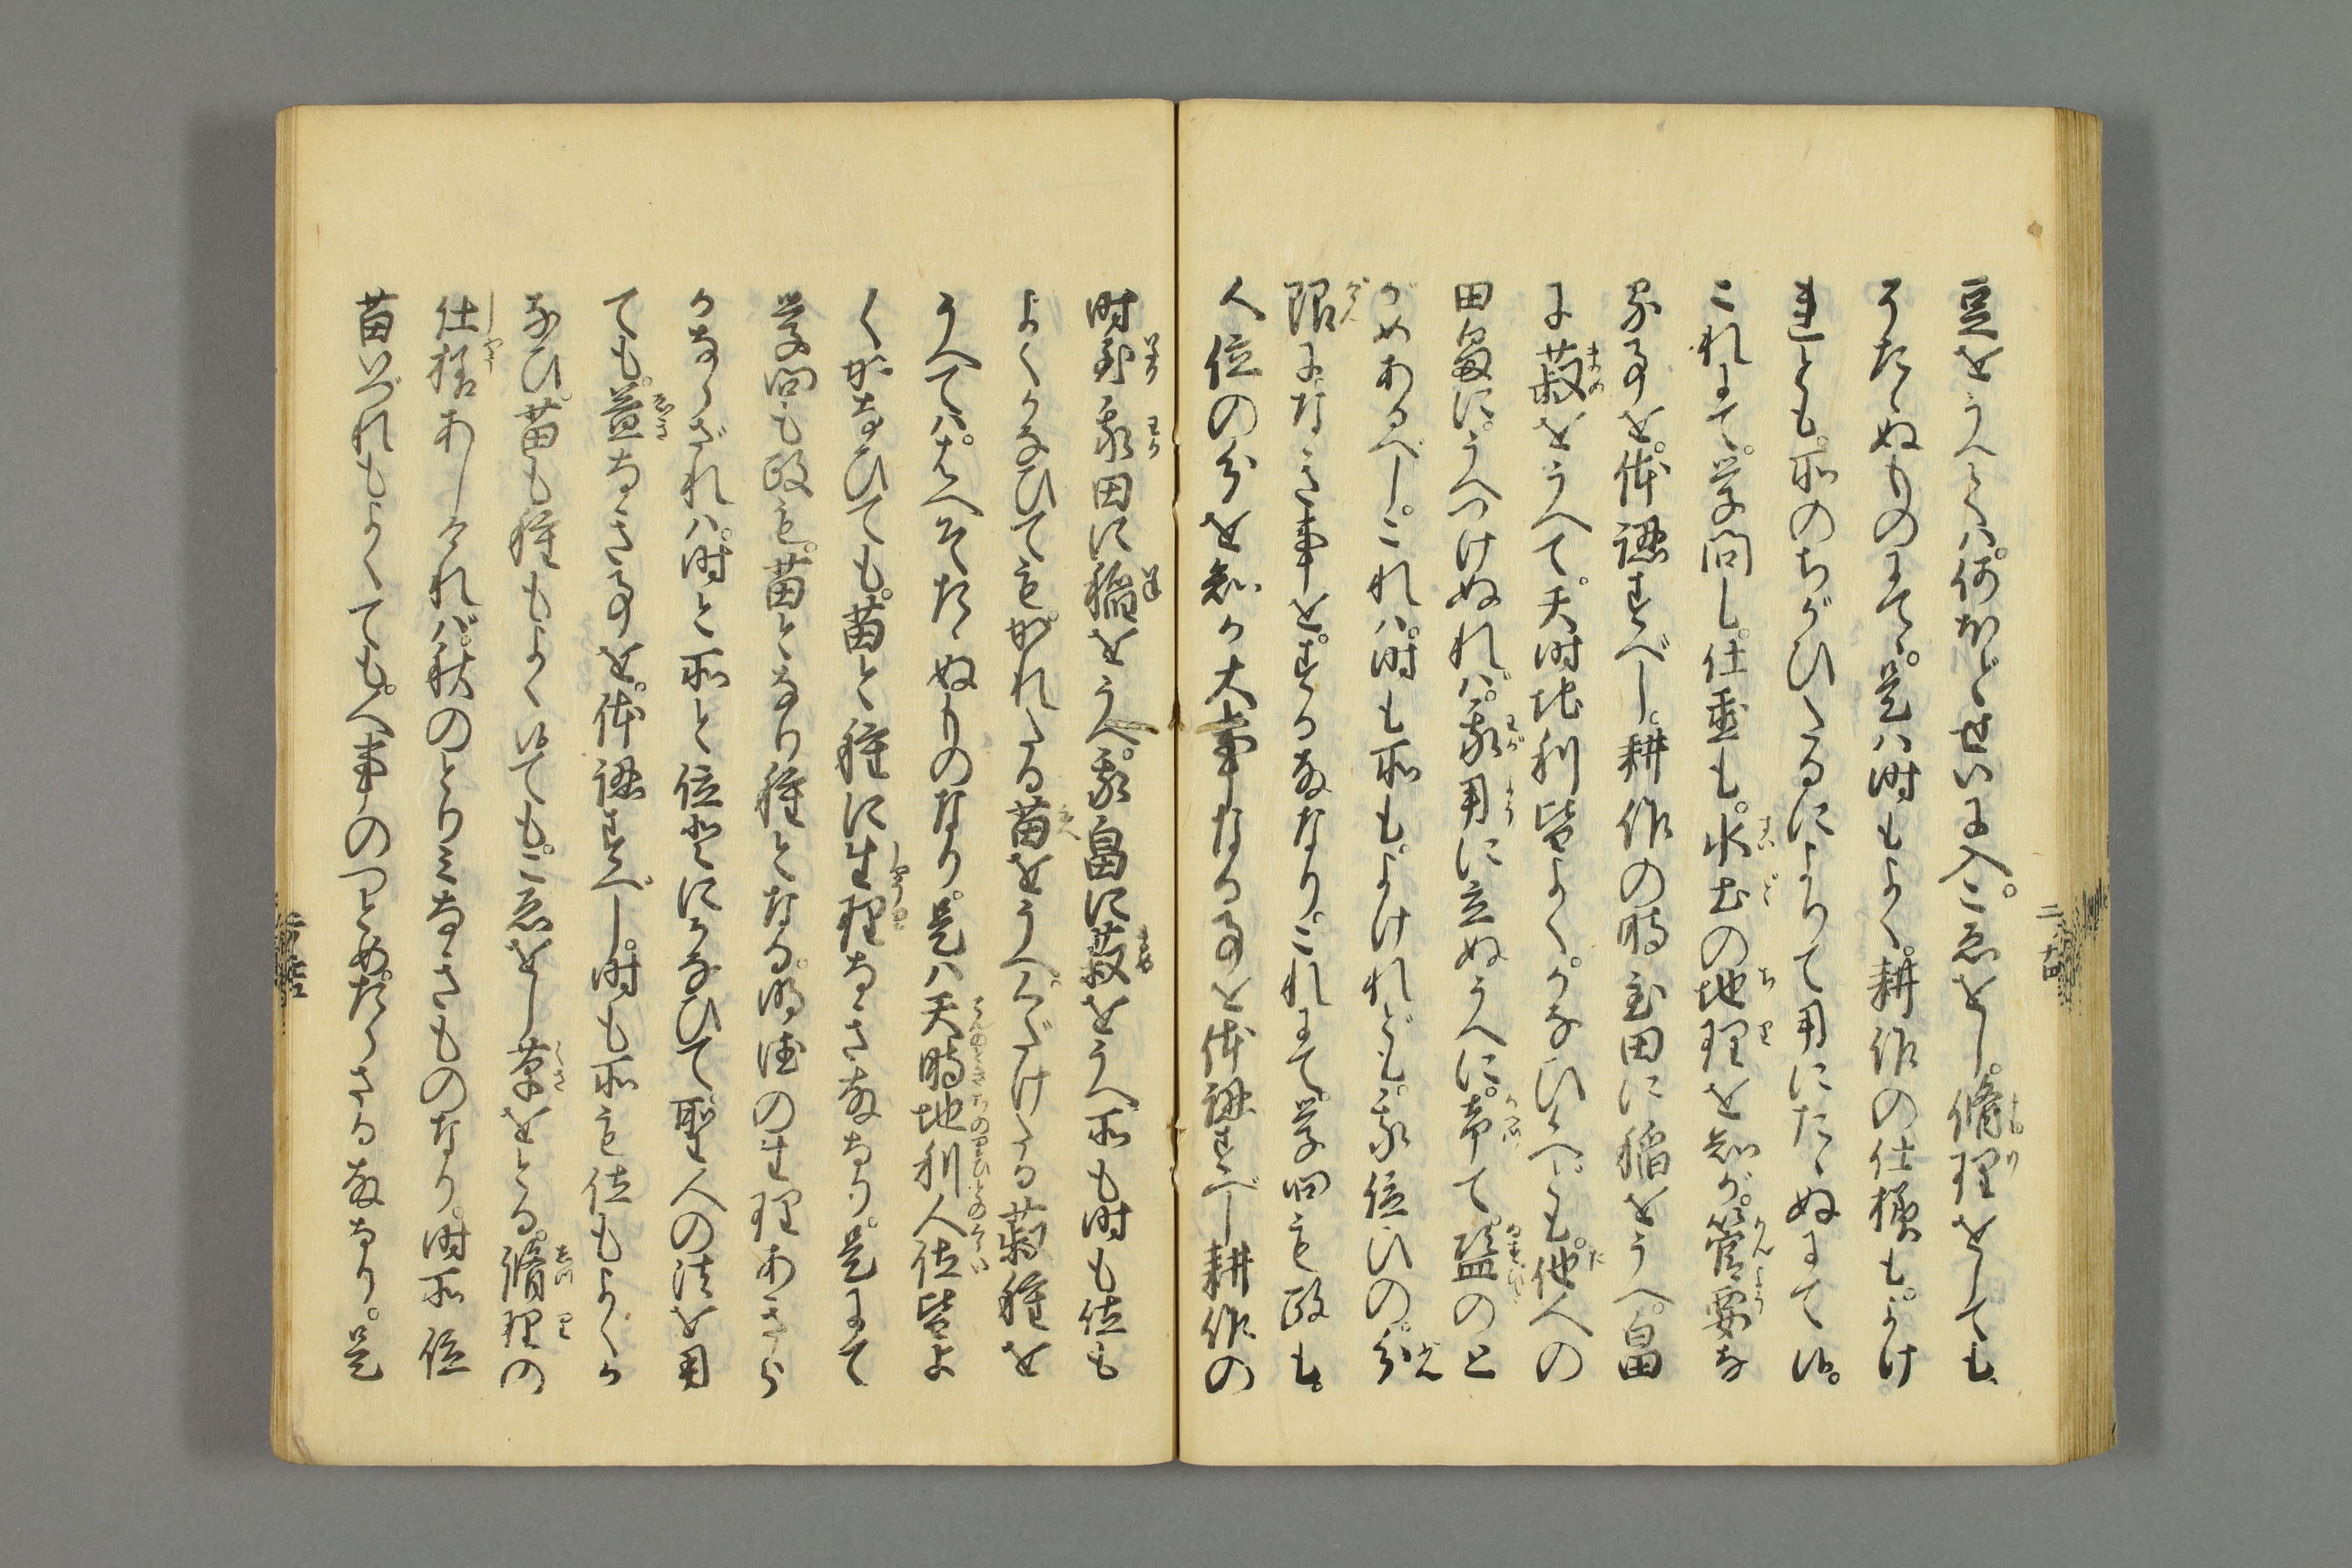 豆をうへては。何ほどせいに入。こゑをし。脩理をしても。
そだゝぬものにて。是は時もよく。耕作の仕様も。よけ
れども。所のちがひたるによりて用にたゝぬにて候。
これにて。学問し。仕置も。水土の地理を知が。管要な
る事を。体認すべし。耕作の時至田に稲をうへ。畠
に菽をうへて。天時地利皆よく。かなひたれ共。他人の
田畠に。うへつけぬれば。我用に立ぬうへに。帝て。盗のと
がめあるべし。これは。時も所も。よけれども。我位ひの。分
限になき事を。する故なり。これにて。学問も政も。
人位の分を知か大事なる事を体認すべし耕作の
時節我田に稲をうへ。我畠に菽をうへ所も時も位も
よくかなひても。かれたる苗をうへくだけたる菽種を
うへては。はへそだゝぬものなり。是は天時地利人位皆よ
くかなひても。苗と種に生理なき故なり。是にて
学問も政も。苗となり種となる。明徳の生理あきら
かならざれば。時と所と位とにかなひて聖人の法を用
ても。益なき事を。体認すべし。時も所も位もよくか
なひ。苗も種もよく候ても。こゑをし草をとる。脩理の
仕様あしければ。秋のとりみなきものなり。時所位
苗いづれもよくても。人事のつとめ。たらざる故なり。是
二ノ十四